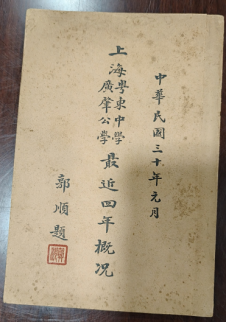 中華民國三十年元月
上海粵東中學
廣肇公學
最近四年概况
郭順題